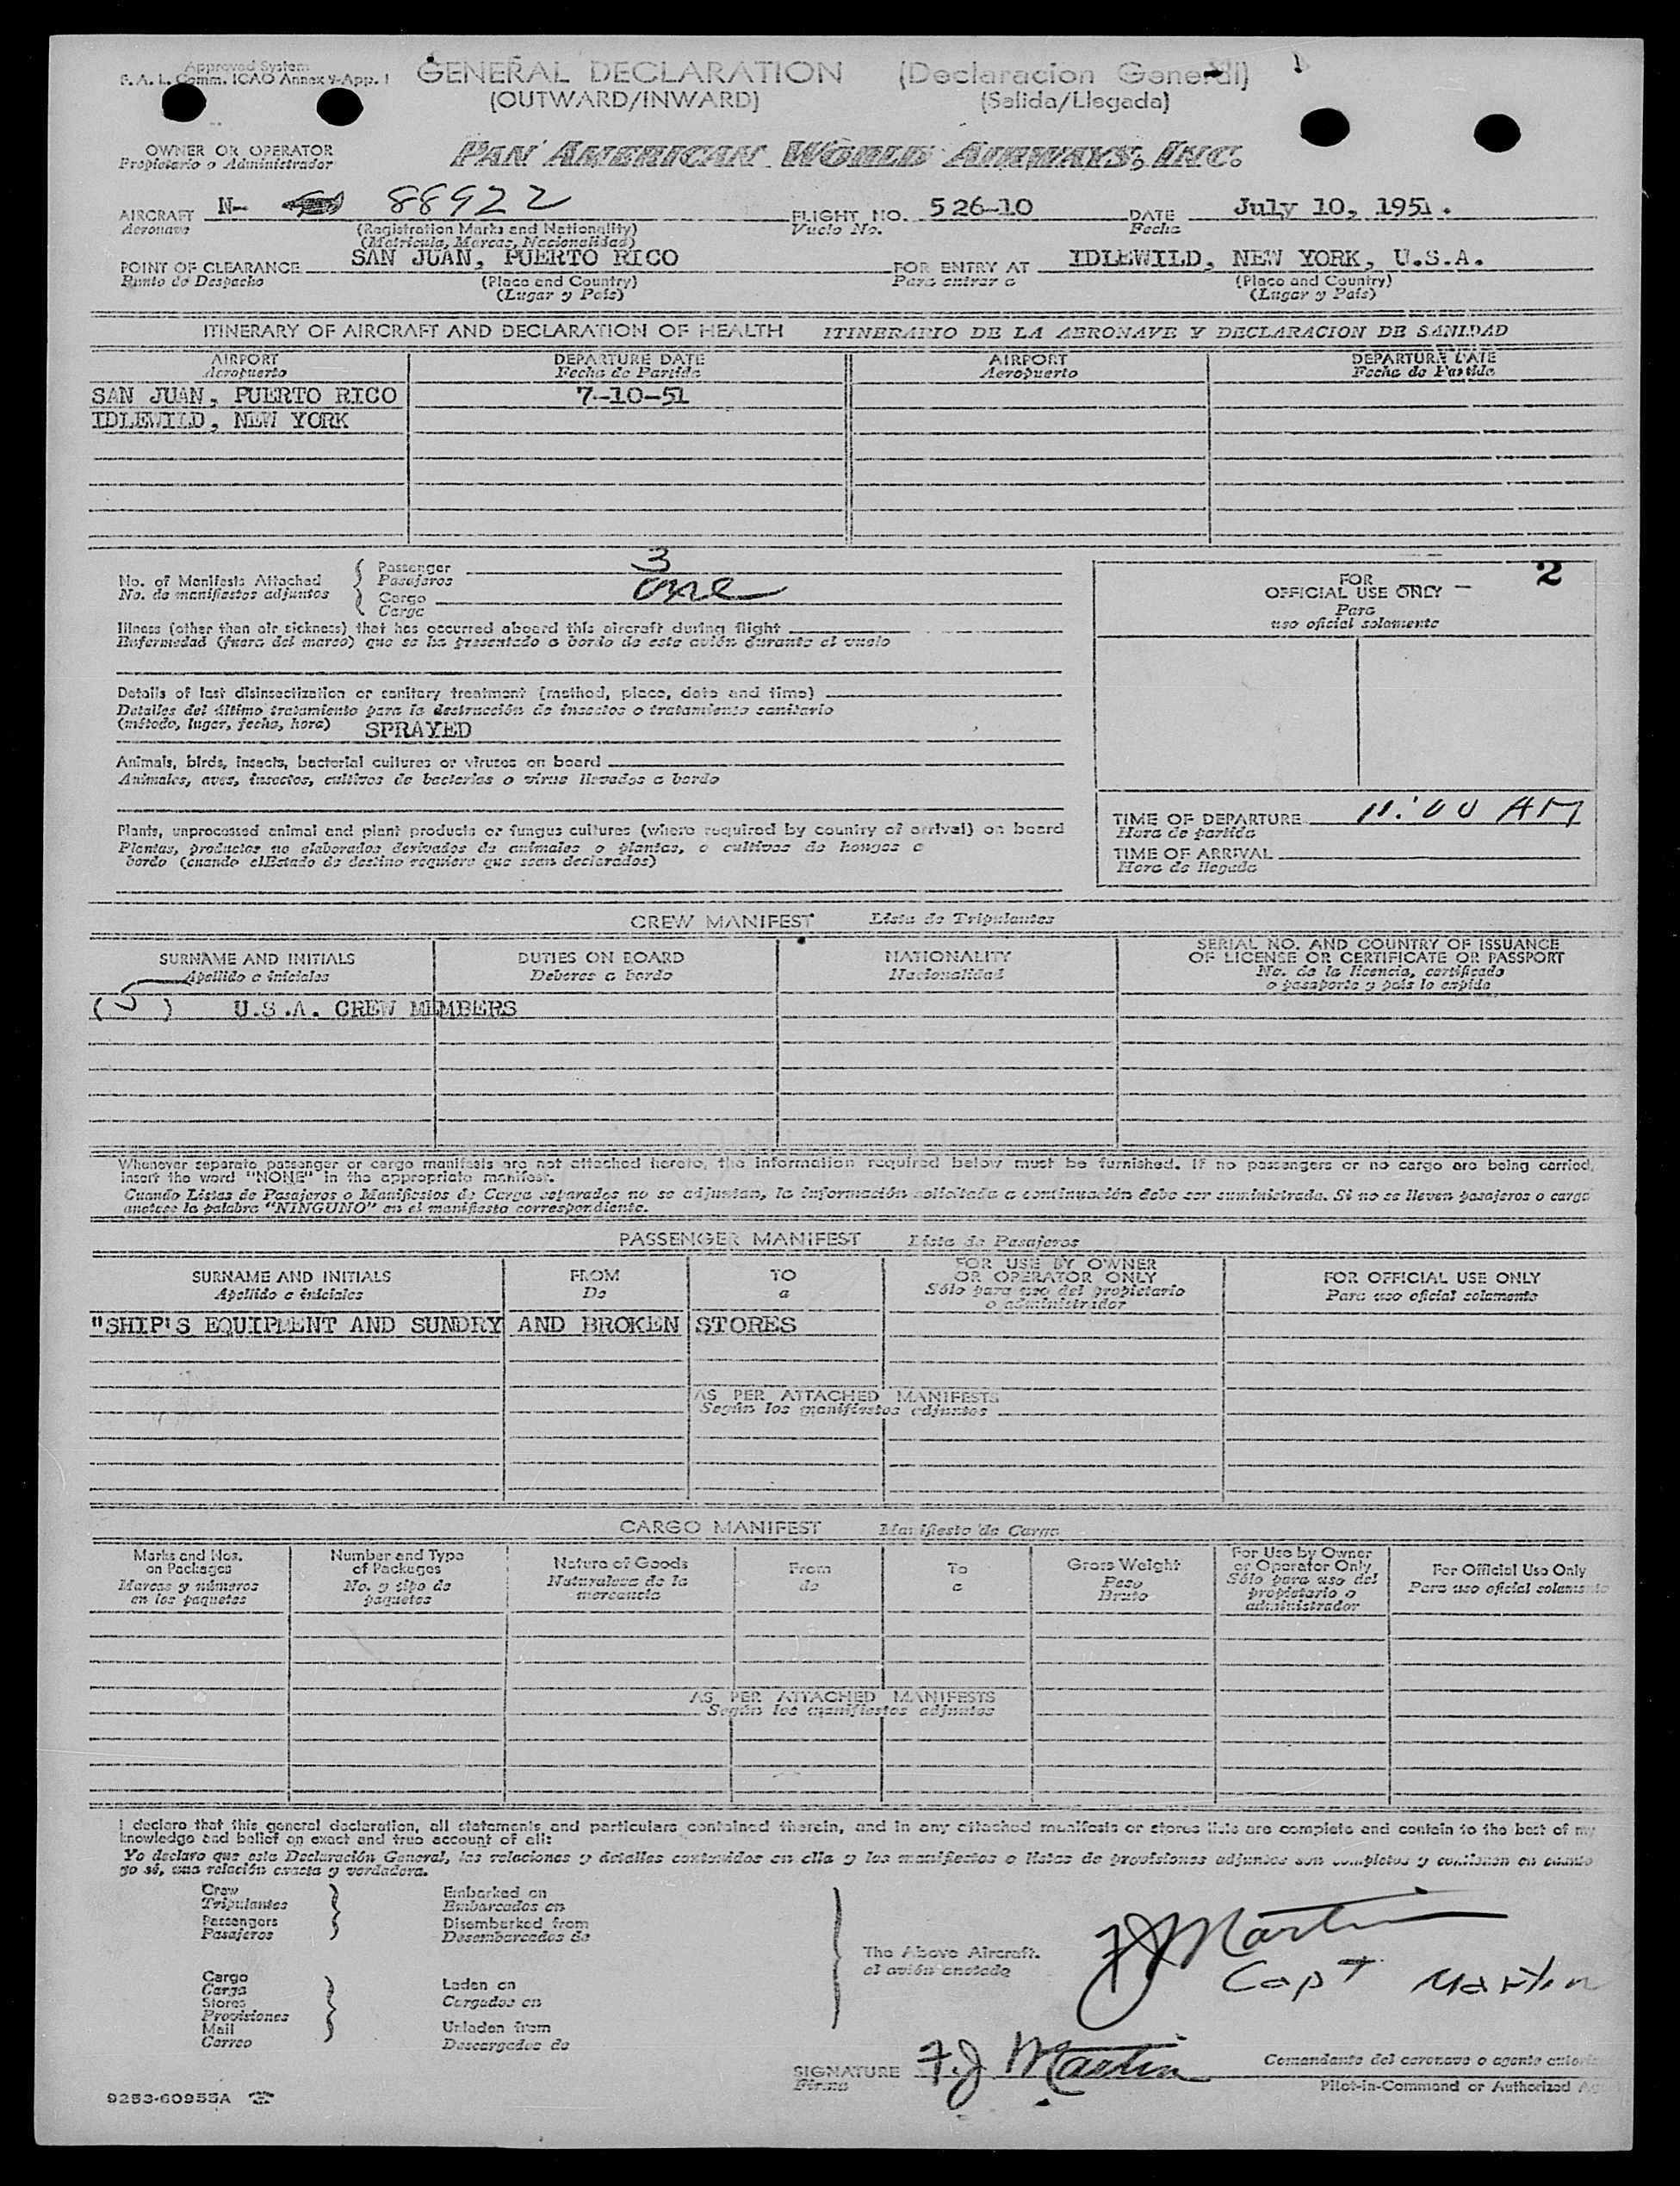 Approved System
F. A. L. Comm. ICAO Annex 9-App. 1
GENERAL DECLARATION (Declaracion General)
(OUTWARD/INWARD) (Salida/Llegada)
OWNER OR OPERATOR
Propietario o Administrador
PAN AMERICAN WORLD AIRWAYS, INC.
AIRCRAFT N- 88922 FLIGHT NO. 526-10 DATE July 10, 1951.
Aeronave (Registration Marks and Nationality) Vuelo No. Fecha
(Matricula, Marcas, Nacionalidad)
POINT OF CLEARANCE SAN JUAN, PUERTO RICO FOR ENTRY AT IDLEWILD, NEW YORK, U.S.A.
Punto de Despacho (Place and Country) Para entrar a (Place and Country)
(Lugar y País) (Lugar y País)
ITINERARY OF AIRCRAFT AND DECLARATION OF HEALTH ITINERARIO DE LA AERONAVE Y DECLARACION DE SANIDAD
AIRPORT DEPARTURE DATE AIRPORT DEPARTURE DATE
Aeropuerto Fecha de Partida Aeropuerto Fecha de Partida
SAN JUAN, PUERTO RICO 7-10-51
IDLEWILD, NEW YORK
No. of Manifests Attached
No. de manifiestos adjuntos
Passenger 3
Pasajeros
Cargo one
Carga
FOR OFFICIAL USE ONLY 2
Para
uso oficial solamente
Illness (other than air sickness) that has occurred aboard this aircraft during flight
Enfermedad (fuera del mareo) que se ha presentado a bordo de este avión durante el vuelo
Details of last disinsectization or sanitary treatment (method, place, date and time)
Detalles del último tratamiento para la destrucción de insectos o tratamiento sanitario
(método, lugar, fecha, hora) SPRAYED
Animals, birds, insects, bacterial cultures or viruses on board
Animales, aves, insectos, cultivos de bacterias o virus llevados a bordo
Plants, unprocessed animal and plant products or fungus cultures (where required by country of arrival) on board
Plantas, productos no elaborados derivados de animales o plantas, o cultivos de hongos a
bordo (cuando elEstado de destino requiere que sean declarados)
TIME OF DEPARTURE 11:00 AM
Hora de partida
TIME OF ARRIVAL
Hora de llegada
CREW MANIFEST Lista de Tripulantes
SURNAME AND INITIALS DUTIES ON BOARD NATIONALITY SERIAL NO. AND COUNTRY OF ISSUANCE
OF LICENSE OR CERTIFICATE OR PASSPORT
Apellido e iniciales Deberes a bordo Nacionalidad No. de la licencia, certificado
o pasaporte y país lo expide
( ) U.S.A. CREW MEMBERS
Whenever separate passenger or cargo manifests are not attached hereto, the information required below must be furnished. If no passengers or no cargo are being carried,
insert the word "NONE" in the appropriate manifest.
Cuando Listas de Pasajeros o Manifiestos de Carga separados no se adjuntan, la información solicitada a continuación debe ser suministrada. Si no se lleven pasajeros o carga
anotese la palabra "NINGUNO" en el manifiesto correspondiente.
PASSENGER MANIFEST Lista de Pasajeros
SURNAME AND INITIALS FROM TO FOR USE BY OWNER
OR OPERATOR ONLY FOR OFFICIAL USE ONLY
Apellido e iniciales De a Sólo para uso del propietario
o administrador Para uso oficial solamente
"SHIP'S EQUIPMENT AND SUNDRY AND BROKEN STORES
AS PER ATTACHED MANIFESTS
Según los manifiestos adjuntos
CARGO MANIFEST Manifiesto de Carga
Marks and Nos. on Packages Number and Type of Packages Nature of Goods From To Gross Weight For Use by Owner or Operator Only For Official Use Only
Marcas y números en los paquetes No. y tipo de paquetes Naturaleza de la mercancia de a Peso Bruto Sólo para uso del propietario o administrador Para uso oficial solamente
AS PER ATTACHED MANIFESTS
Según los manifiestos adjuntos
I declare that this general declaration, all statements and particulars contained therein, and in any attached manifests or stores lists are complete and contain to the best of my
knowledge and belief an exact and true account of all:
Yo declaro que esta Declaración General, las relaciones y detalles contenidos en ella y los manifiestos o listas de provisiones adjuntos son completos y contienen en cuanto
yo sé, una relación exacta y verdadera.
Crew Embarked on
Tripulantes Embarcados en
Passengers Disembarked from
Pasajeros Desembarcados de
The Above Aircraft.
el avión anotado
FJ Martin
Capt Martin
Cargo Laden on
Carga Cargados en
Stores
Provisiones
Mail Unladen from
Correo Descargados de
SIGNATURE F.J Martin Comandante del aeronave o agente
Firma Pilot-in-Command or Authorized
9253-60955A